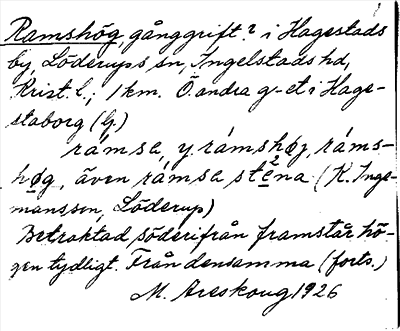 Ramshög, gånggrift? i Hagestads
by, Löderups sn, Ingelstads hd,
Krist. l.; 1 km. Ö. andra g-et i Hage-
staborg (lg.)
rámsa, y. rámshøj, ráms-
høg, även rámsa stena (K. Inge-
mansson, Löderup)
Betraktad söderifrån framstår hö-
gen tydligt. Från densamma (forts.)
M. Areskoug 1926